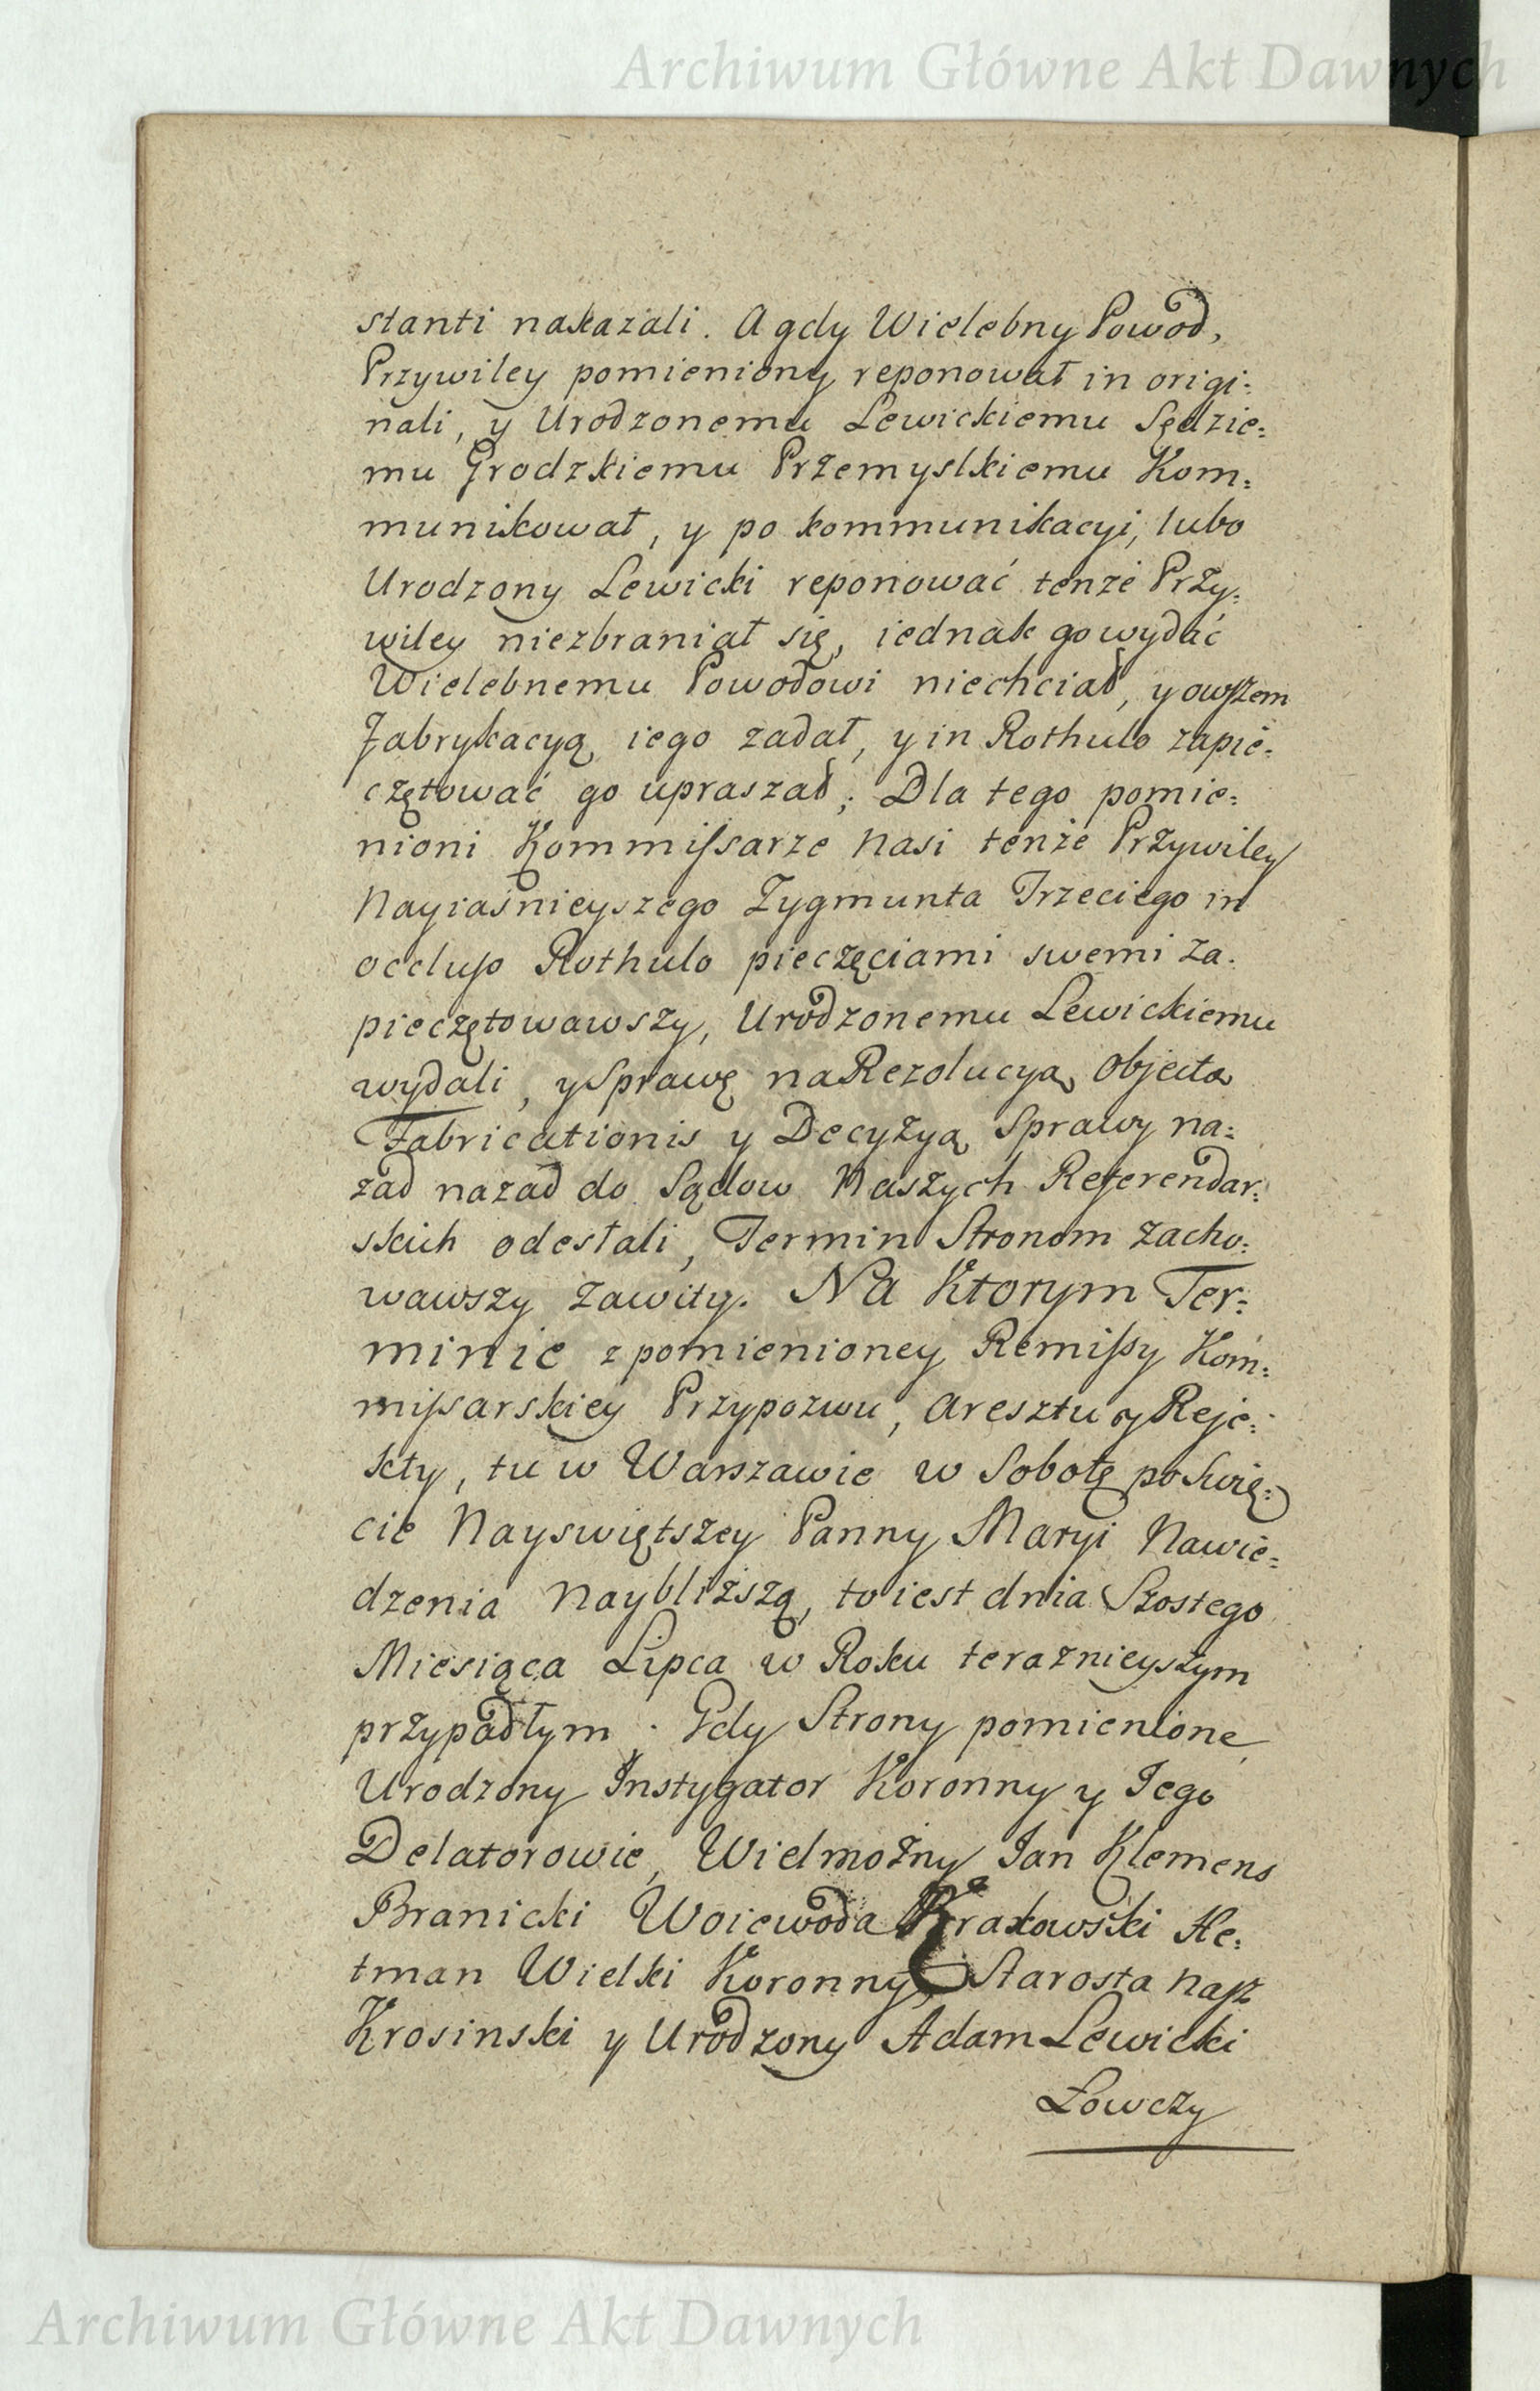 Archiwum Główne Akt Dawnych
stanti nakazali. A gdy Wielebny Powod,
Przywiley pomieniony reponował in origi=
nali, y Urodzonemu Lewickiemu Sędzie=
mu Grodzkiemu Przemyslkiemu Kom=
munikował, y po kommunikacyi, lubo
Urodzony Lewicki reponować tenże Przy=
wiley niezbraniał się, iednak go wydać
Wielebnemu Powodowi niechciał, y owszem
Fabrykacyą iego zadał, y in Rothulo zapie=
czętować go upraszał; Dla tego pomie=
nioni Kommissarze Nasi tenże Przywiley
Nayiaśnieyszego Zygmunta Trzeciego in
occluso Rothulo pieczęciami swemi za=
pieczętowawszy, Urodzonemu Lewickiemu
wydali, y Sprawę na Rezolucyą Objecta
Fabricationis y Decyzyą Sprawy na=
zad nazad do Sądow Naszych Referendar=
skich odesłali, Termin Stronom zacho=
wawszy zawity. Na Ktorym Ter=
minie z pomienioney Remissy Kom=
missarskiey Przypozwu, Aresztu y Reje=
kty, tu w Warszawie w Sobotę po Swię=
cie Nayswiętszey Panny Maryi Nawie=
dzenia Naybliższą, to iest dnia Szostego
Miesiąca Lipca w Roku teraznieyszym
przypadłym. Gdy Strony pomienione
Urodzony Instygator Koronny y Iego
Delatorowie, Wielmożny Jan Klemens
Branicki Woiewoda Krakowski He=
tman Wielki Koronny, Starosta Nasz
Krosinski y Urodzony Adam Lewicki
Łowczy
Archiwum Główne Akt Dawnych